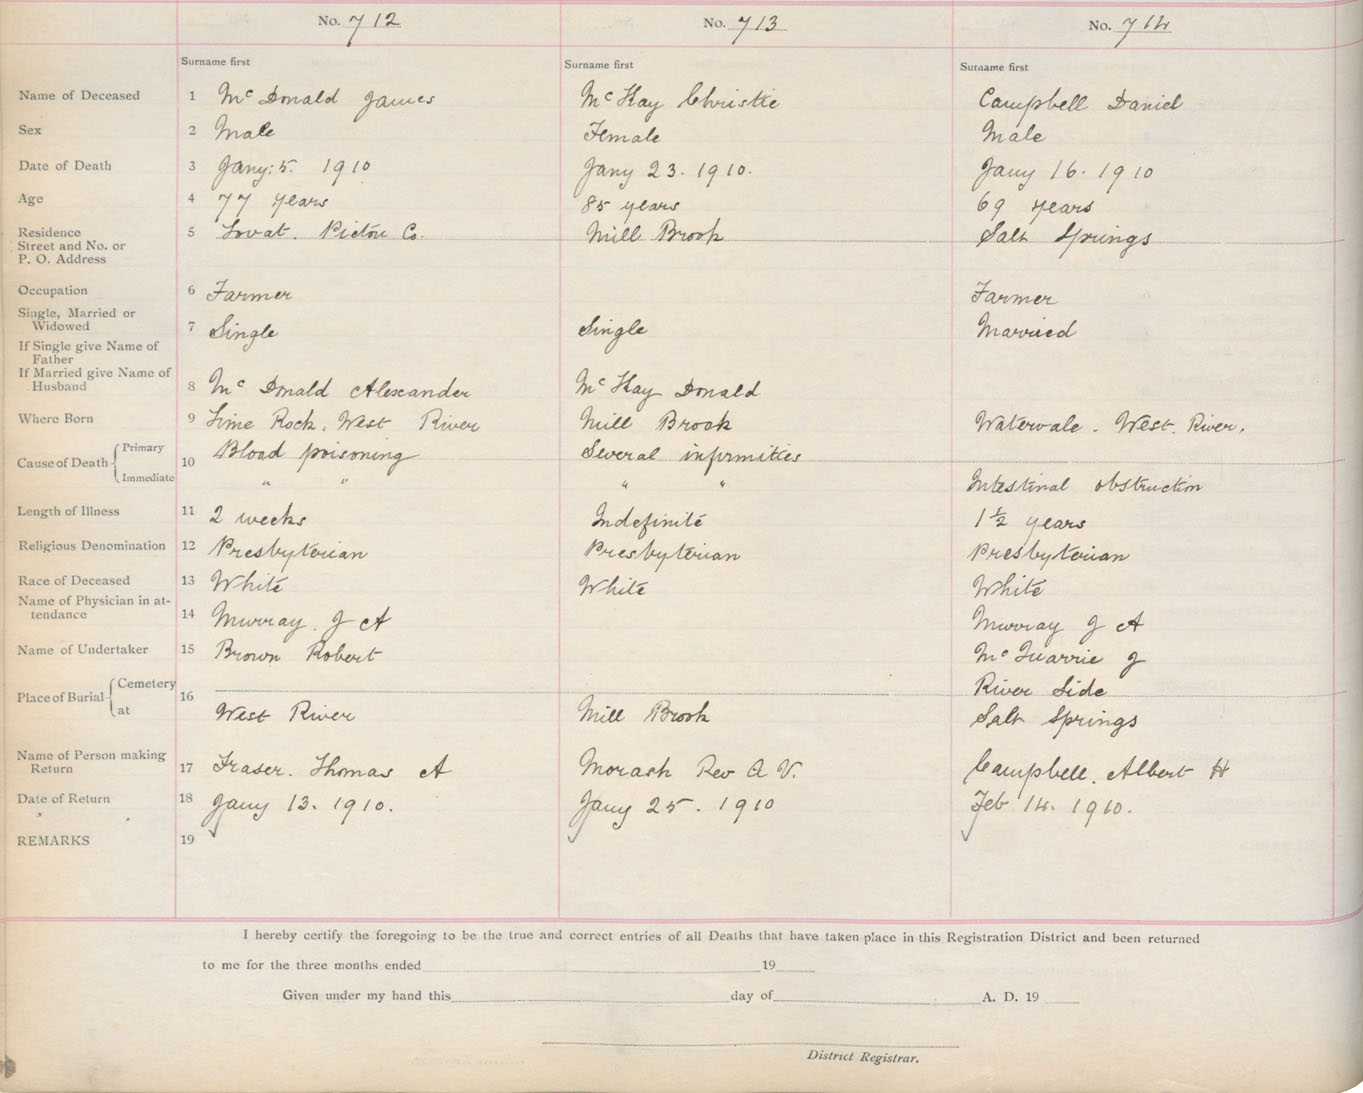 No. 712 No. 713 No. 714
Surname first Surname first Surname first
Name of Deceased 1 Mc Donald James Mc Kay Christie Campbell Daniel
Sex 2 Male Female Male
Date of Death 3 Jany: 5. 1910 Jany 23. 1910. Jany 16. 1910
Age 4 77 years 85 years 69 years
Residence 5 Lovat. Pictou Co. Mill Brook Salt Springs
Street and No. or
P. O. Address
Occupation 6 Farmer Farmer
Single, Married or
Widowed 7 Single Single Married
If Single give Name of
Father
If Married give Name of
Husband 8 Mc Donald Alexander Mc Kay Donald
Where Born 9 Lime Rock. West River Mill Brook Watervale. West River.
Cause of Death Primary 10 Blood poisoning Several infirmities
Immediate " " " " Intestinal obstruction
Length of Illness 11 2 weeks Indefinite 1 1/2 years
Religious Denomination 12 Presbyterian Presbyterian Presbyterian
Race of Deceased 13 White White White
Name of Physician in at-
tendance 14 Murray. J A Murray J A
Name of Undertaker 15 Brown Robert Mc Quarrie J
Place of Burial Cemetery 16 River Side
at West River Mill Brook Salt Springs
Name of Person making
Return 17 Fraser. Thomas A Morash Rev A V. Campbell. Albert H
Date of Return 18 Jany 13. 1910. Jany 25. 1910 Feb 14. 1910.
REMARKS 19
I hereby certify the foregoing to be the true and correct entries of all Deaths that have taken place in this Registration District and been returned
to me for the three months ended 19
Given under my hand this day of A. D. 19
District Registrar.